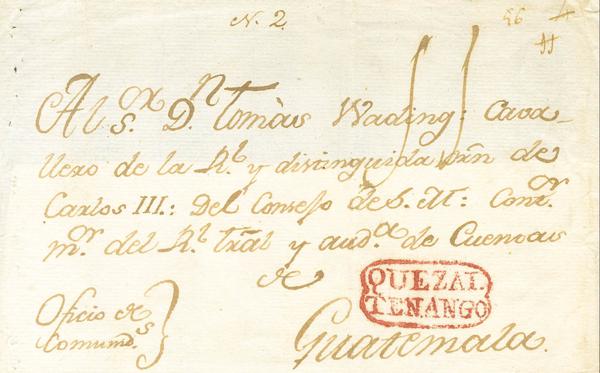 N. 2.
56
Al S.or D.n Tomàs Wading: Cava-
llero de la R.l y distinguida orn de
Carlos III.: Del Consejo de S. M: Cont.or
m.or del R.l tral y aud.a de Cuentas
de
QUEZAL
TENANGO
Oficio de
Comund.s
Guatemala.